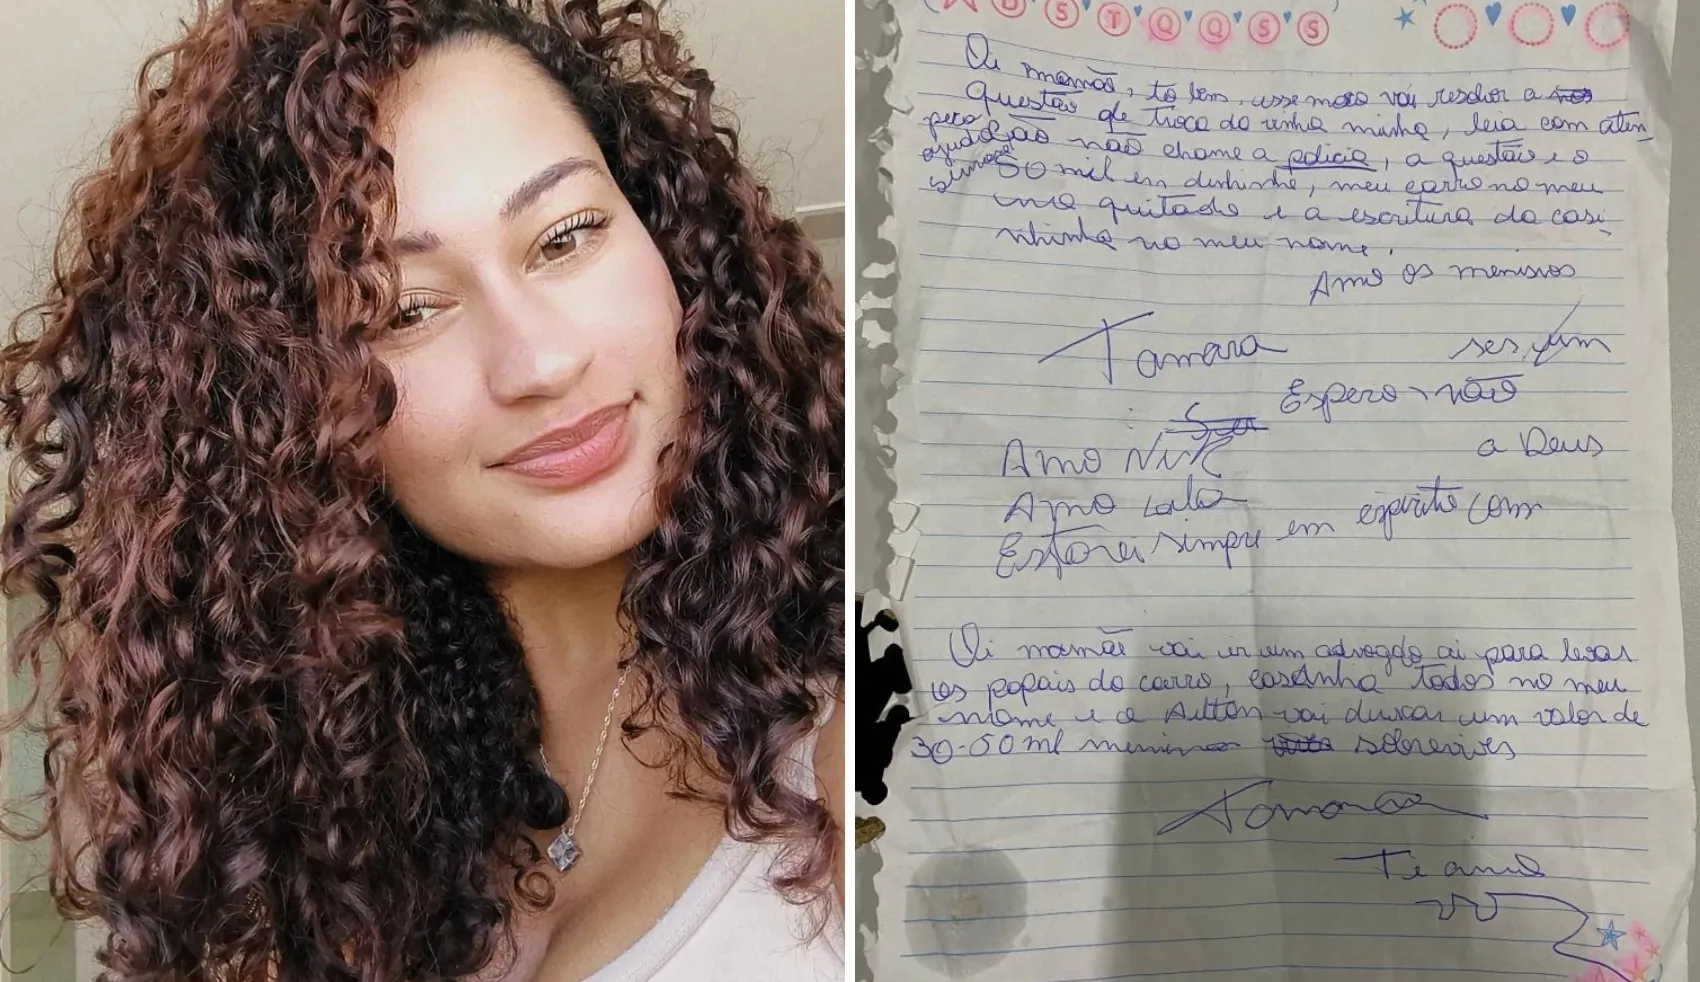 D S T Q Q S S
Oi mamãe, to bem, esse moço vai resolver a
questão de troca da minha, leia com aten
peço não chame a policia, a questão e o
50 mil em dinheiro, meu carro no meu
quitado e a escritura da casi-
nhinha no meu nome.
Amo os meninos
Tamara
Espero não
a Deus
Amo
Amo
Estarei sempre em espirito com
Oi mamãe vai ir um advogdo ai para levar
os papais do carro, casinha todos no meu
nome e o Ailton vai buscar um valor de
30-50 ml sobrevives
Tamara
Ti amo